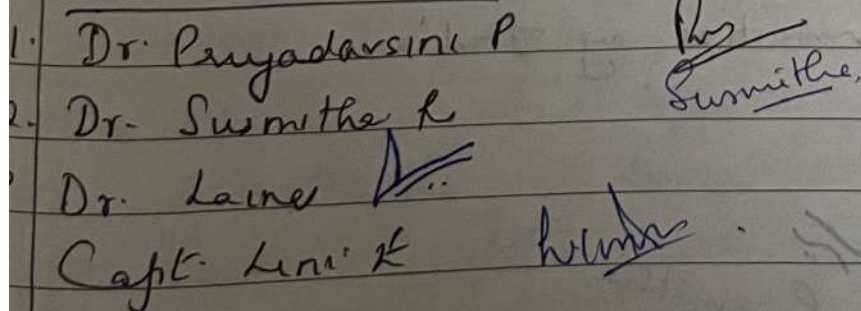 1. Dr. Priyadarsini P
2. Dr. Susmitha R Susmitha
Dr. Laine
Capt. Leni K